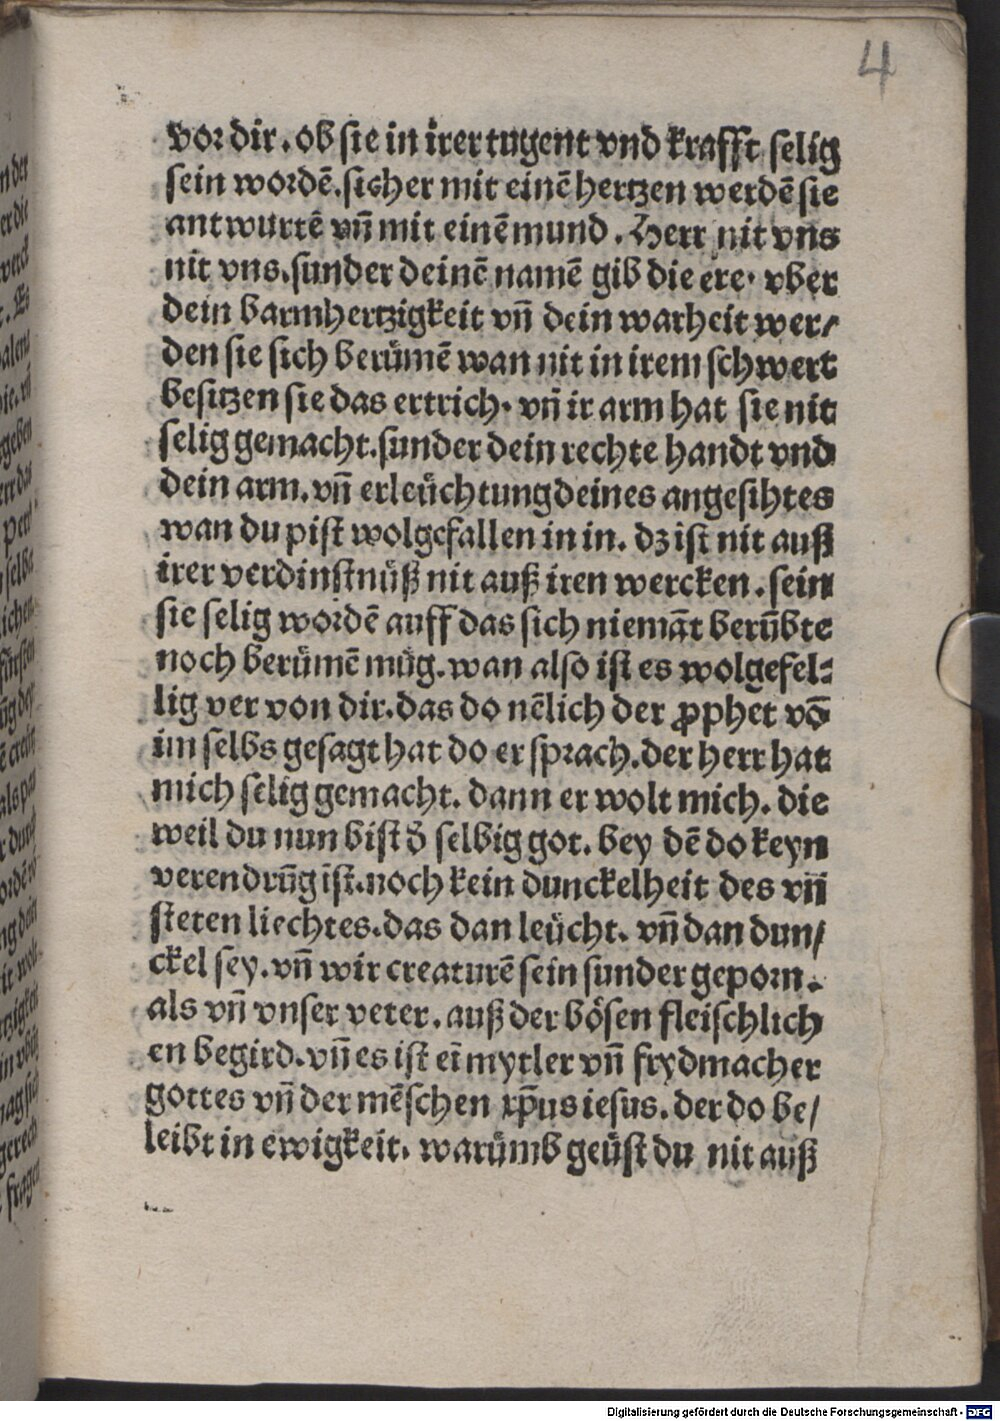 4
vor dir. ob sie in irer tugent vnd krafft selig
sein wordē. sicher mit einē hertzen werdē sie
antwurtē vn̄ mit einē mund. Herr nit vns
nit vns. sunder deinē namē gib die ere. vber
dein barmhertzigkeit vn̄ dein warheit wer/
den sie sich berümē wan nit in irem schwert
besitzen sie das ertrich. vn̄ ir arm hat sie nit
selig gemacht. sunder dein rechte handt vnd
dein arm. vn̄ erleüchtung deines angesihtes
wan du pist wolgefallen in in. dz ist nit auß
irer verdinstnüß nit auß iren wercken. sein
sie selig wordē auff das sich niemāt beru̅bte
noch berümē müg. wan also ist es wolgefel-
lig ver von dir. das do nēlich der ꝓphet vō
im selbs gesagt hat do er sprach. der herr hat
mich selig gemacht. dann er wolt mich. die
weil du nun bist d̄ selbig got. bey dē do keyn
verendrūg ist. noch kein dunckelheit des vn̄
steten liechtes. das dan leücht. vn̄ dan dun/
ckel sey. vn̄ wir creaturē sein sunder geporn.
als vn̄ vnser veter. auß der bösen fleischlich
en begird. vn̄ es ist eī mytler vn̄ frydmacher
gottes vn̄ der mēschen xp̄us iesus. der do be/
leibt in ewigkeit. warümb geüst du nit auß
Digitalisierung gefördert durch die Deutsche Forschungsgemeinschaft - DFG